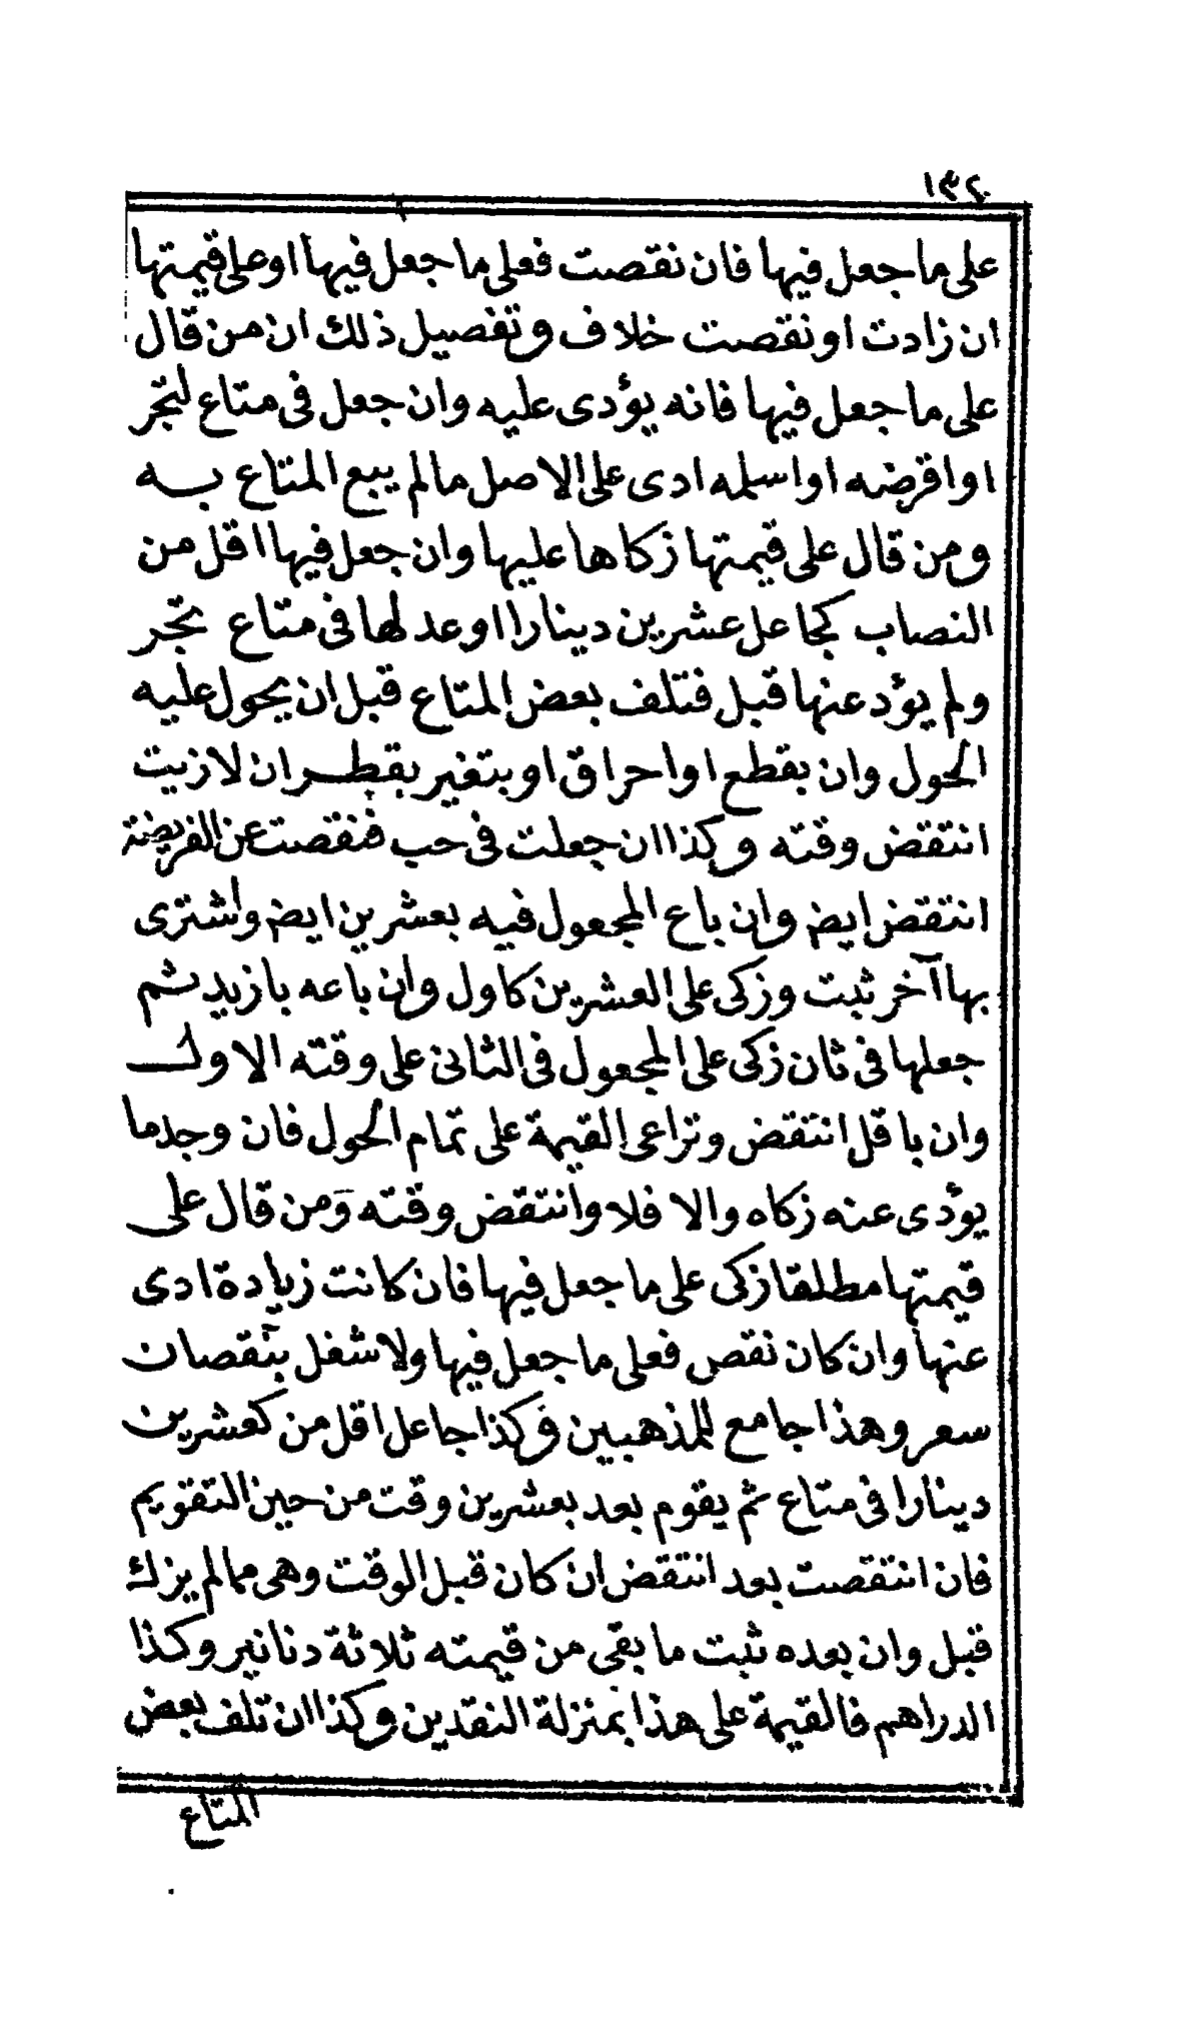 ١٣٢
على ما جعل فيها فان نقصت فعلى ما جعل فيها او على قيمتها
ان زادت او نقصت خلاف وتفصيل ذلك ان من قال
على ما جعل فيها فانه يؤدى عليه وان جعل فى متاع لتجر
او اقرضه او اسلمه ادى على الاصل ما لم يبع المتاع به
ومن قال على قيمتها زكاها عليها وان جعل فيها اقل من
النصاب كجاعل عشرين دينارا او عدلها فى متاع تجر
ولم يؤد عنها قبل فتلف بعض المتاع قبل ان يحول عليه
الحول وان بقطع او احراق او بتغير بقطران لا زيت
انتقض وقته وكذا ان جعلت فى حب فنقصت عن الفريضة
انتقض ايض وان باع المجعول فيه بعشرين ايض واشترى
بها آخر ثبت وزكى على العشرين كاول وان باعه بازيد ثم
جعلها فى ثان زكى على المجعول فى الثانى على وقته الاول
وان باقل انتقض وتراعى القيمة على تمام الحول فان وجد ما
يؤدى عنه زكاه والا فلا وانتقض وقته ومن قال على
قيمتها مطلقا زكى على ما جعل فيها فان كانت زيادة ادى
عنها وان كان نقص فعلى ما جعل فيها ولا شغل بنقصان
سعر وهذا جامع للمذهبين وكذا جاعل اقل من كعشرين
دينارا فى متاع ثم يقوم بعد بعشرين وقت من حين التقويم
فان انتقصت بعد انتقض ان كان قبل الوقت وهى مما لم يزك
قبل وان بعده ثبت ما بقى من قيمته ثلاثة دنانير وكذا
الدراهم فالقيمة على هذا بمنزلة النقدين وكذا ان تلف بعض
المتاع